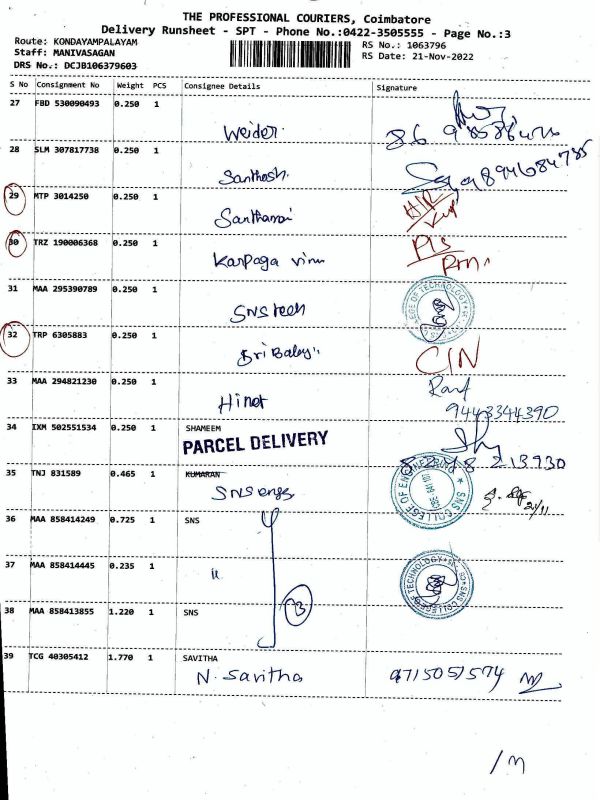 THE PROFESSIONAL COURIERS, Coimbatore
Delivery Runsheet - SPT - Phone No.:0422-3505555 - Page No.:3
Route: KONDAYAMPALAYAM
Staff: MANIVASAGAN
DRS No.: DCJB106379603
RS No.: 1063796
RS Date: 21-Nov-2022
S No Consignment No Weight PCS Consignee Details Signature
27 FBD 530090493 0.250 1
Weider
28 SLM 307817738 0.250 1
Santhosh
29 MTP 3014250 0.250 1
30 TRZ 190006368 0.250 1
Karpaga
31 MAA 295390789 0.250 1
SNS tech
32 TRP 6305883 0.250 1
Sri Balaji
33 MAA 294821230 0.250 1
9443344390
34 IXM 502551534 0.250 1 SHAMEEM
PARCEL DELIVERY
35 TNJ 831589 0.465 1 KUMARAN
SNS engg
SNS COLLEGE OF ENGINEERING
21/11
36 MAA 858414249 0.725 1 SNS
37 MAA 858414445 0.235 1
"
SNS COLLEGE OF TECHNOLOGY
38 MAA 858413855 1.220 1 SNS
3
39 TCG 40305412 1.770 1 SAVITHA
N. Savitha 9715051574